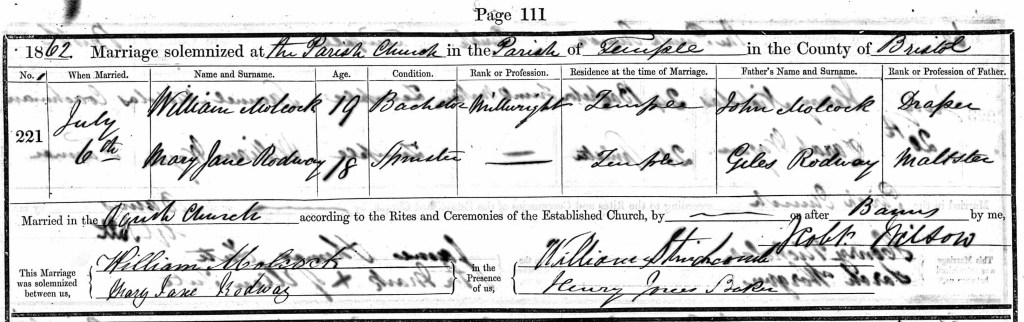 Page 111
1862. Marriage solemnized at the Parish Church in the Parish of Temple in the County of Bristol
No. When Married. Name and Surname. Age. Condition. Rank or Profession. Residence at the time of Marriage. Father's Name and Surname. Rank or Profession of Father.
221 July 6th William Molcock 19 Bachelor Millwright Temple John Molcock Draper
Mary Jane Rodway 18 Spinster — Temple Giles Rodway Maltster
Married in the Parish Church according to the Rites and Ceremonies of the Established Church, by — or after Banns by me,
Robt
This Marriage was solemnized between us, William Molcock in the Presence of us, William
Mary Jane Rodway Henry Jones Baker